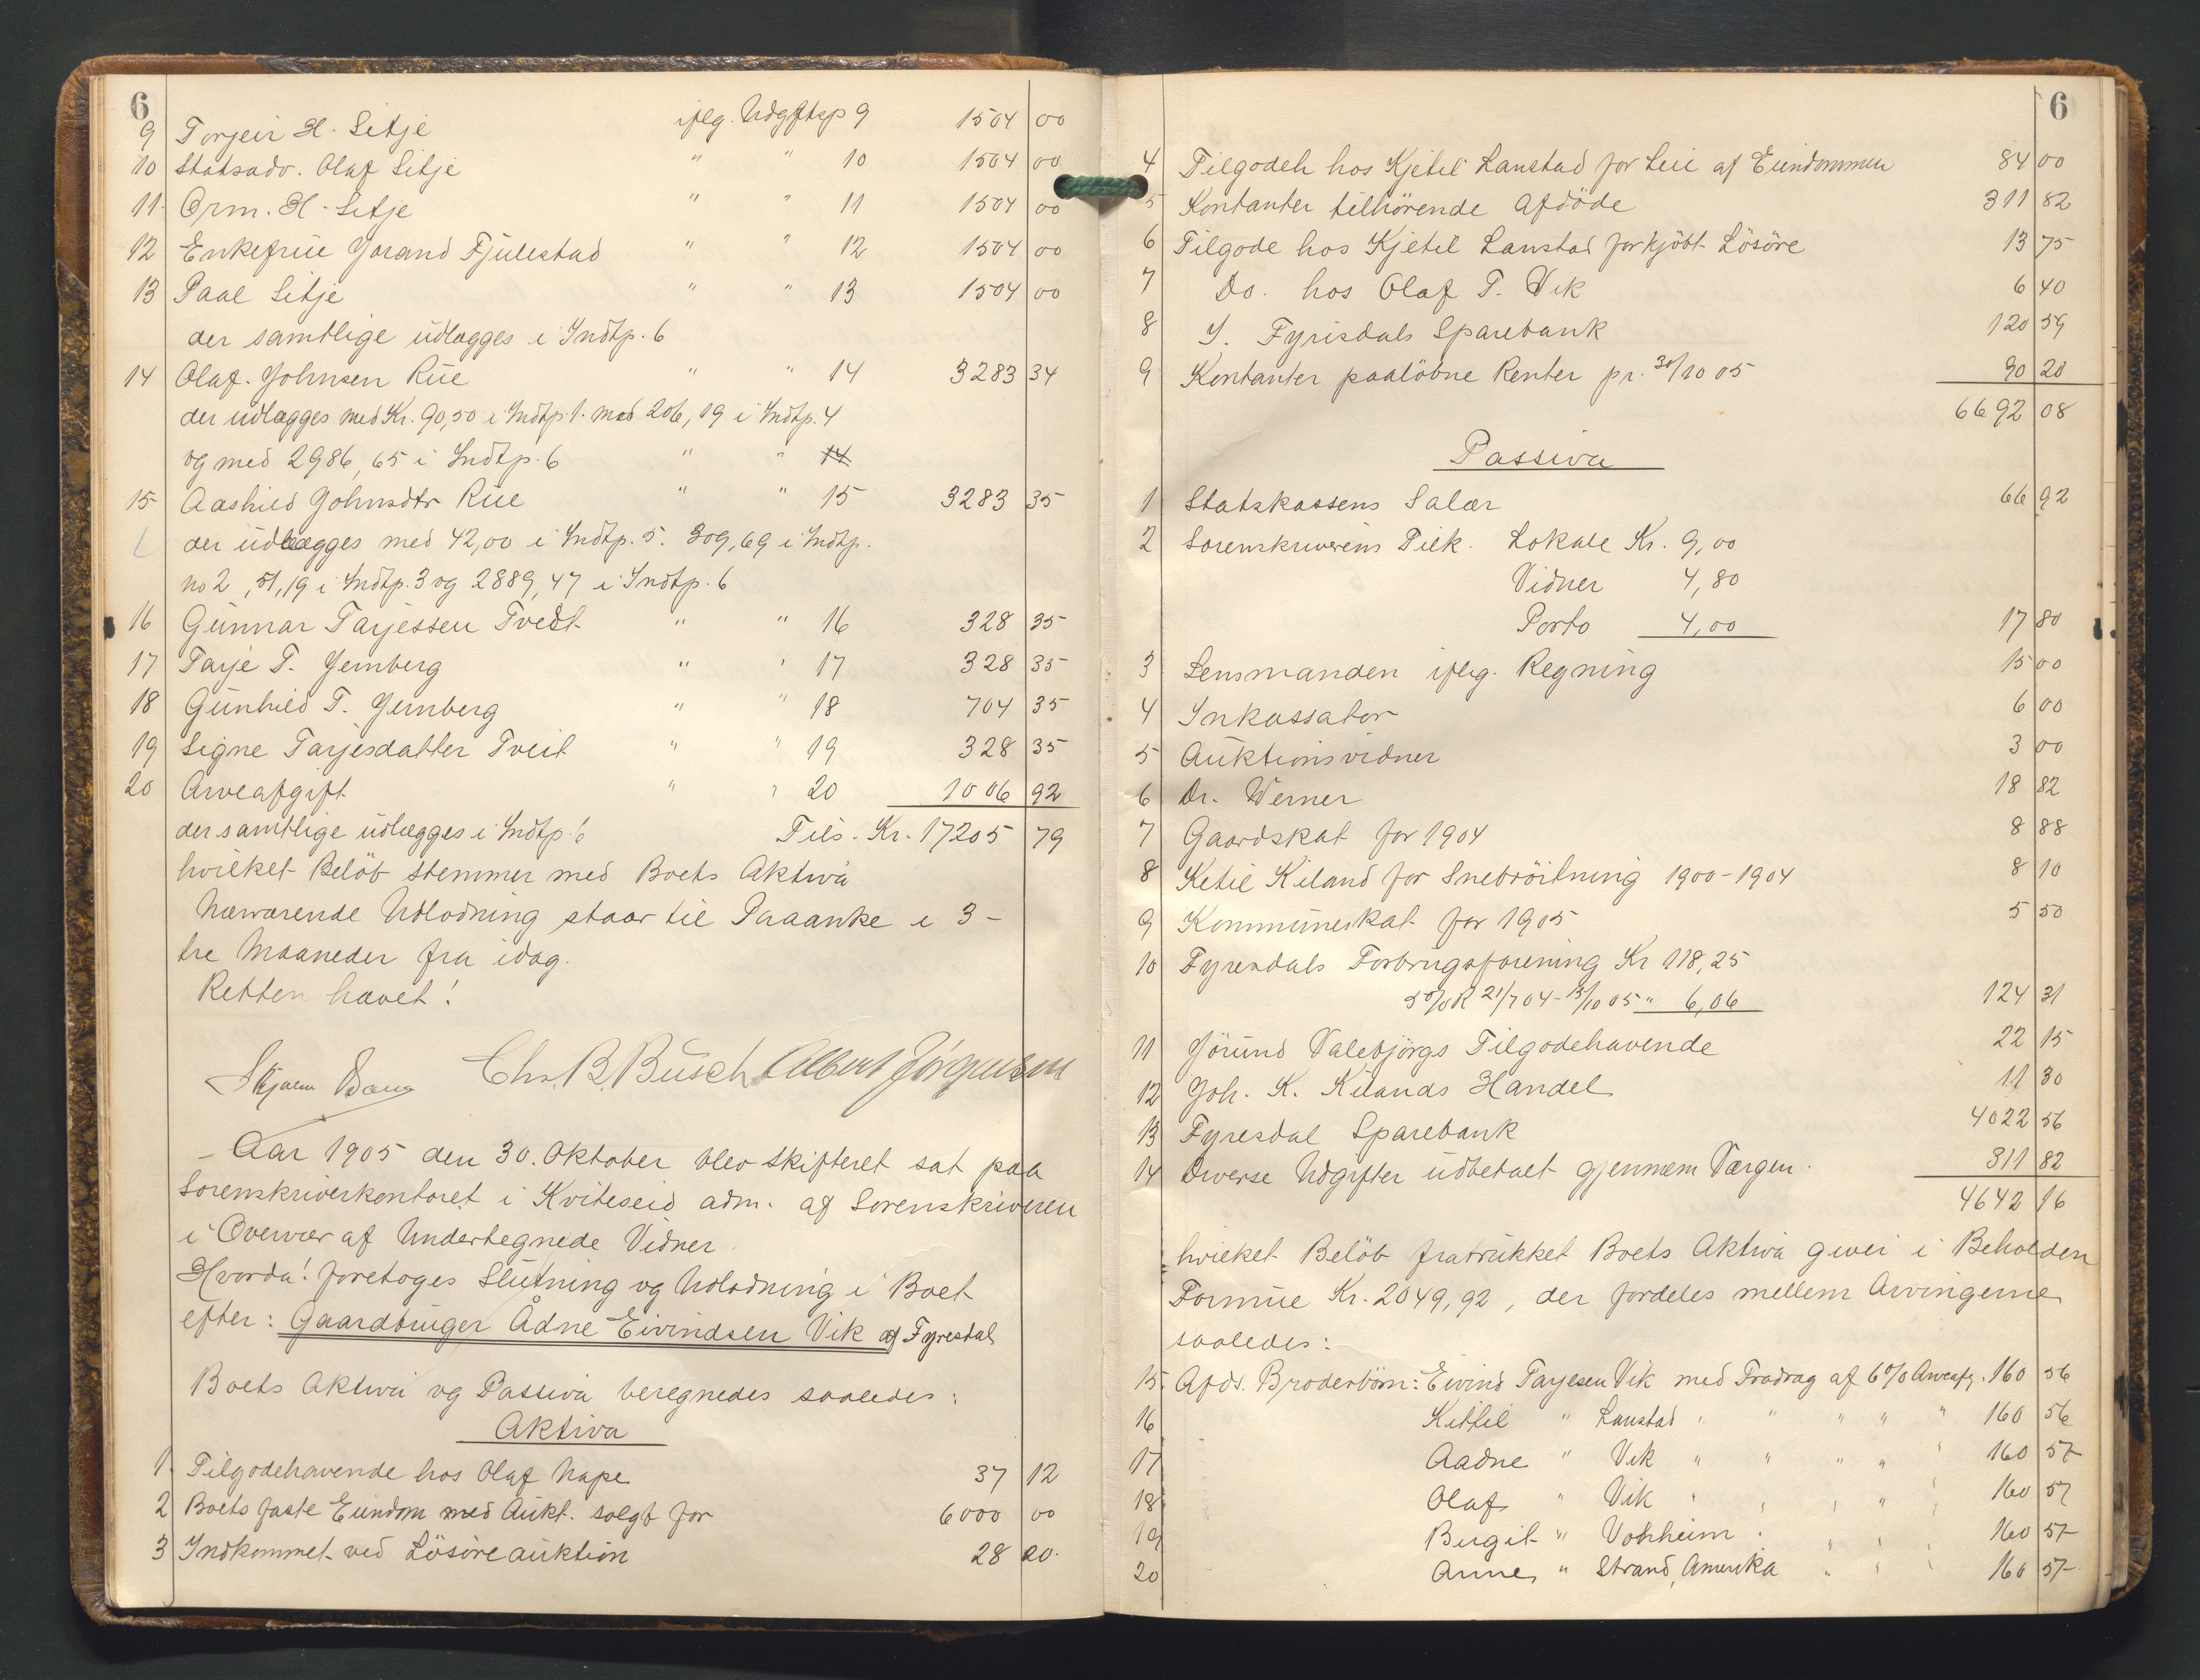 6
9 Torjeir H. Sitje iflg. Udgftsp 9 1504 00
10 Statsadv. Olaf Sitje " " 10 1504 00
11 Orm. H. Sitje " " 11 1504 00
12 Enkefrue Jorand Fjulestad " " 12 1504 00
13 Paal Sitje " " 13 1504 00
der samtlige udlægges i Indtp. 6
14 Olaf. Johnsen Rue " " 14 3283 34
der udlægges med Kr. 90,50 i Indtp 1. med 206,19 i Indtp. 4
og med 2986,65 i Indtp. 6 " " 14
15 Aashild Johnsdtr Rue " " 15 3283 35
der udlægges med 42,00 i Indtp. 5. 309,69 i Indtp.
no 2, 51,19 i Indtp. 3 og 2889,47 i Indtp. 6
16 Gunnar Tarjessen Tvedt " " 16 328 35
17 Tarje T. Jernberg " " 17 328 35
18 Gunhild T. Jernberg " " 18 704 35
19 Signe Tarjesdatter Tveit " " 19 328 35
20 Arveafgift " " 20 1006 92
der samtlige udlægges i Indtp. 6 Tils. Kr. 17205 79
hvilket Beløb stemmer med Boets Aktiva
Nærværende Udlodning staar til Paaanke i 3-
tre Maaneder fra idag.
Retten hævet!
Chr. B. Busch Albert Jörgensen
Aar 1905 den 30. Oktober blev Skifteret sat paa
Sorenskriverkontoret i Kviteseid adm. af Sorenskriveren
i Overvær af Undertegnede Vidner
Hvorda! foretoges Slutning og Udlodning i Boet
efter: Gaardbruger Ådne Eivindsen Vik af Fyresdal
Boets Aktiva og Passiva beregnedes saaledes:
Aktiva
1. Tilgodehavende hos Olaf Nape 37 12
2 Boets faste Eiendom med Aukt. solgt for 6000 00
3 Indkommet ved Løsøreauktion 28 20.
6
4 Tilgodeh hos Kjetil Lanstad for Leie af Eiendommen 84 00
5 Kontanter tilhörende Afdöde 311 82
6 Tilgode hos Kjetil Lanstad for kjöbt Lösöre 13 75
7 Do. hos Olaf T. Vik 6 40
8 I. Fyrisdals Sparebank 120 59
9 Kontanter paalöbne Renter pr. 30/10 05 90 20
6692 08
Passiva
1 Statskassens Salær 66 92
2 Sorenskriverens Tilk. Lokale Kr. 9,00
Vidner 4,80
Porto 4,00 17 80
3 Lensmanden iflg. Regning 15 00
4 Inkassator 6 00
5 Auktionsvidner 3 00
6 Dr. Werner 18 82
7 Gaardskat for 1904 8 88
8 Ketil Kiland for Snebröitning 1900-1904 8 10
9 Kommuneskat for 1905 5 50
10 Fyresdals Forbrugsforening Kr 118,25
5% R 21/7 04 - 15/10 05 " 6,06 124 31
11 Jörund Valebjörgs Tilgodehavende 22 15
12 Joh. K. Kilands Handel 11 30
13 Fyresdal Sparebank 4022 56
14 Diverse Udgifter udbetalt gjennem Værgen. 311 82
4642 16
hvilket Belöb fratrukket Boets Aktiva giver i Beholden
Formue Kr. 2049,92, der fordeles mellem Arvingerne
saaledes:
15. Afds. Broderbörn: Eivind Tarjesen Vik med Fradrag af 6% Arveafg. 160 56
16 Kittil " Lanstad " " " " " 160 56
17 Aadne " Vik " " " " " 160 57
18 Olaf " Vik " " " " " 160 57
19 Birgit " Vohheim " " " " 160 57
20 Anne " Strand, Amerika " " " 160 57